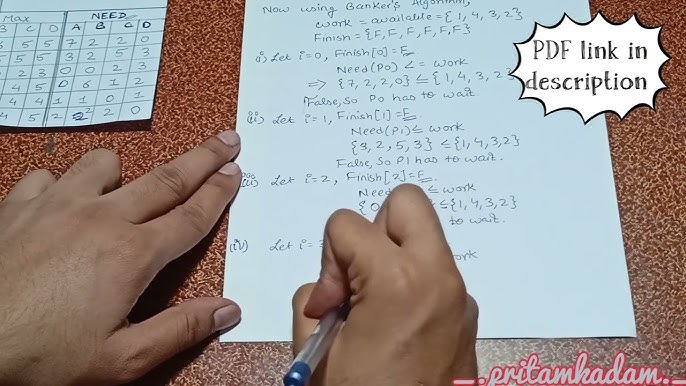 Max NEED
B C D A B C D
5 5 7 2 2 0
5 3 3 2 5 3
2 3 0 0 2 3
4 5 0 6 1 2
4 4 1 1 0 1
4 5 2 2 2 0
Now using Banker's Algorithm,
work = available = { 1, 4, 3, 2 }
Finish = {F, F, F, F, F, F}
(i) Let i=0, Finish[0] = F
Need(P0) ≤ = work
⇒ {7, 2, 2, 0} ≤ { 1, 4, 3, 2
False, So P0 has to wait.
(ii) Let i=1, Finish[1] = F
Need(P1) ≤ work
{3, 2, 5, 3} ≤ {1, 4, 3, 2}
False, So P1 has to wait.
Let i=2, Finish[2] = F
Need ≤ work
{0 ≤ {1, 4, 3, 2}
to wait.
(iv) Let i=3
PDF link in
description
_.pritamkadam._